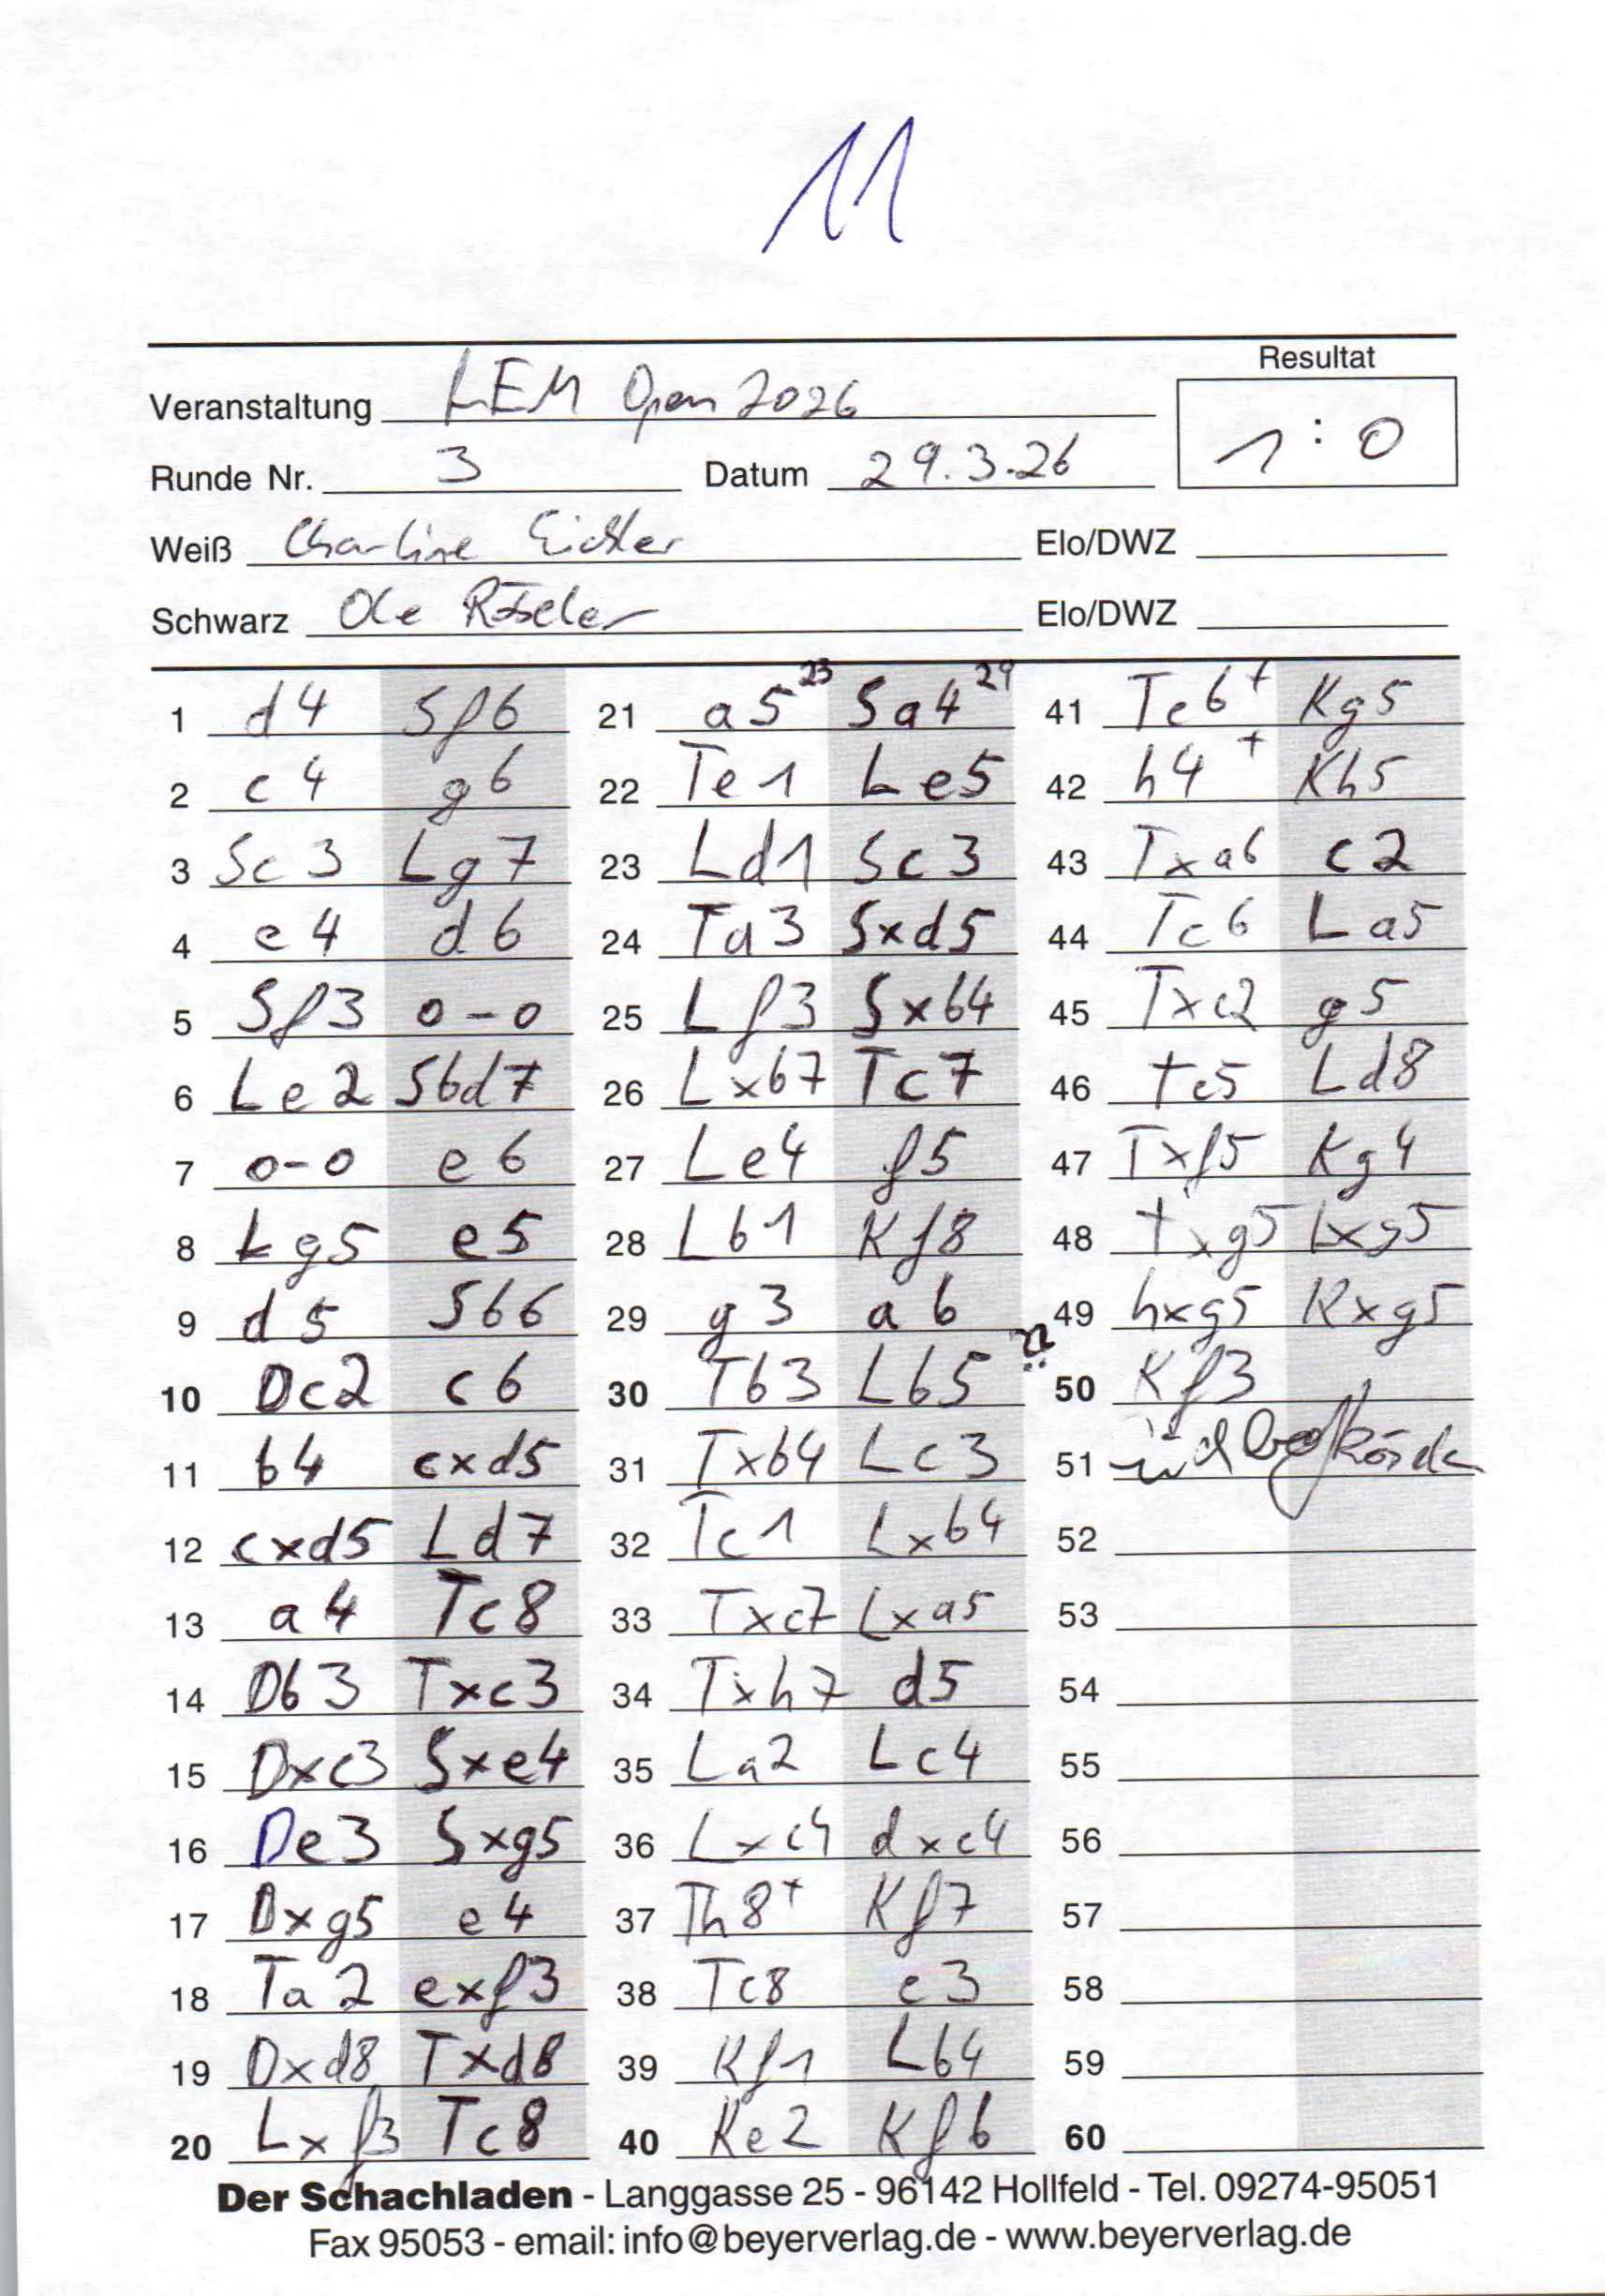 11
Resultat
Veranstaltung LEM Open 2026
1 : 0
Runde Nr. 3 Datum 29.3.26
Weiß Charline Eichler Elo/DWZ
Schwarz Ole Röseler Elo/DWZ
1 d4 Sf6
2 c4 g6
3 Sc3 Lg7
4 e4 d6
5 Sf3 0-0
6 Le2 Sbd7
7 0-0 e6
8 Lg5 e5
9 d5 Sb6
10 Dc2 c6
11 b4 cxd5
12 cxd5 Ld7
13 a4 Tc8
14 Db3 Txc3
15 Dxc3 Sxe4
16 De3 Sxg5
17 Dxg5 e4
18 Ta2 exf3
19 Dxd8 Txd8
20 Lxf3 Tc8
21 a5 23 Sa4 29
22 Te1 Le5
23 Ld1 Sc3
24 Ta3 Sxd5
25 Lf3 Sxb4
26 Lxb7 Tc7
27 Le4 f5
28 Lb1 Kf8
29 g3 a6
30 Tb3 Lb5
31 Txb4 Lc3
32 Tc1 Lxb4
33 Txc7 Lxa5
34 Txh7 d5
35 La2 Lc4
36 Lxc4 dxc4
37 Th8+ Kf7
38 Tc8 c3
39 Kf1 Lb4
40 Ke2 Kf6
41 Tc6+ Kg5
42 h4+ Kh5
43 Txa6 c2
44 Tc6 La5
45 Txc2 g5
46 tc5 Ld8
47 Txf5 Kg4
48 txg5 Lxg5
49 hxg5 Kxg5
50 Kf3
51
52
53
54
55
56
57
58
59
60
Der Schachladen - Langgasse 25 - 96142 Hollfeld - Tel. 09274-95051
Fax 95053 - email: info@beyerverlag.de - www.beyerverlag.de